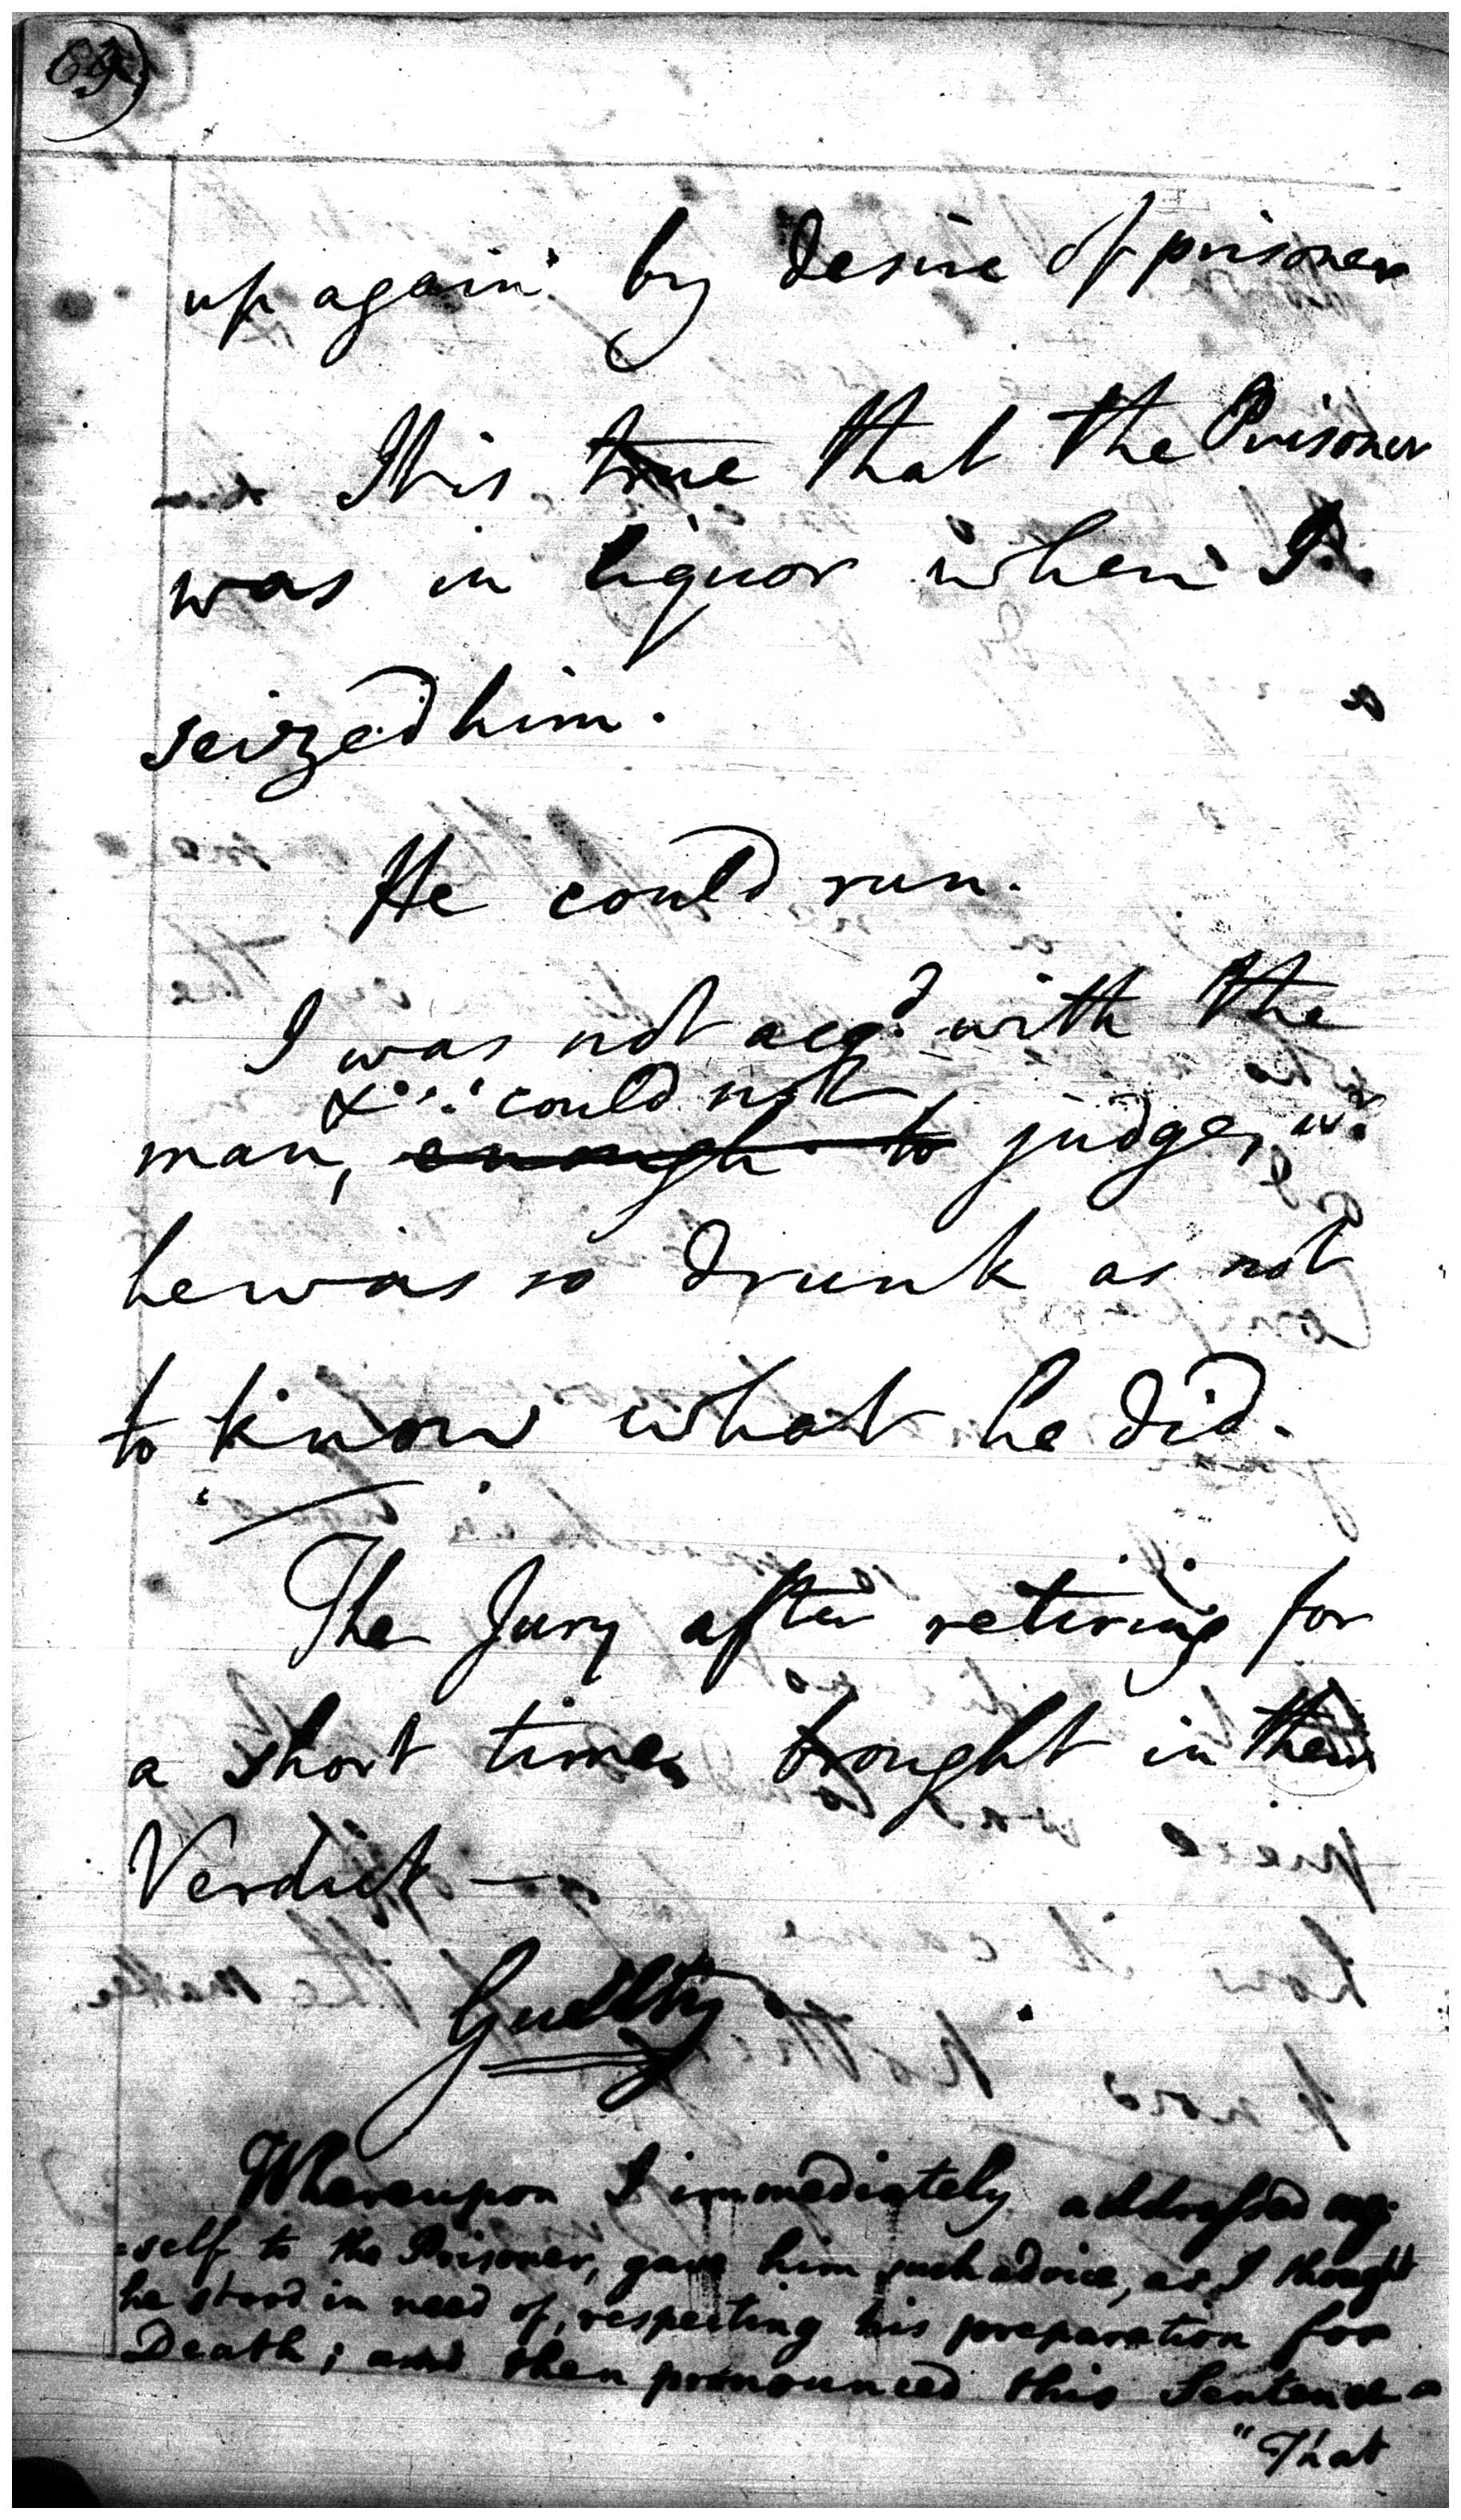 up again by desire of prisoner
It is true that the Prisoner
was in liquor when I
seized him.
He could run.
I was not acqd. with the
& could not
man, enough to judge, wr.
he was so drunk as not
to know what he did.
The Jury after retiring for
a short time, brought in their
Verdict —
Guilty
Whereupon I immediately addressed my-
=self to the Prisoner, gave him such advice, as I thought
he stood in need of, respecting his preparation for
Death; and then pronounced this Sentence
"That